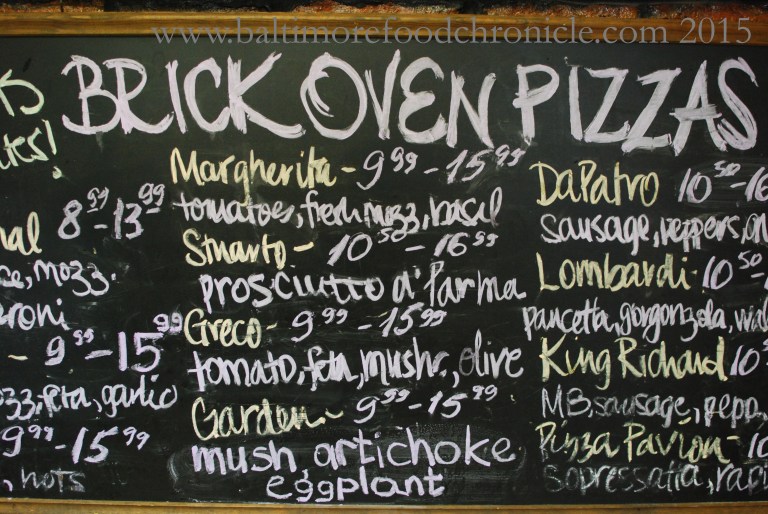 www.baltimorefoodchronicle.com 2015
BRICK OVEN PIZZAS
8.99-13.99
mozz.
9.99-15.99
feta, garlic
9.99-15.99
, hots
Margherita - 9.99-15.99
tomatoes, fresh mozz, basil
Stuarto - 10.50-16.99
prosciutto d'Parma
Greco - 9.99-15.99
tomato, feta, mushr., olive
Garden - 9.99-15.99
mush, artichoke
eggplant
DaPatro 10.50-16
sausage, peppers, on
Lombardi - 10.50-
pancetta, gorgonzola,
King Richard 10
MB, sausage, pepp,
Pizza Pavion - 10
Sopressatta,